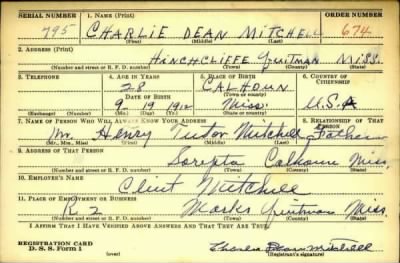 SERIAL NUMBER 1. NAME (Print) ORDER NUMBER
795 CHARLIE DEAN MITCHELL 674
(First) (Middle) (Last)
2. ADDRESS (Print)
HINCHCLIFFE QUITMAN MISS.
(Number and street or R. F. D. number) (Town) (County) (State)
3. TELEPHONE 4. AGE IN YEARS 5. PLACE OF BIRTH 6. COUNTRY OF CITIZENSHIP
28 CALHOUN
DATE OF BIRTH (Town or county)
9 19 1912 Miss. U.S.A
(Exchange) (Number) (Mo.) (Day) (Yr.) (State or country)
7. NAME OF PERSON WHO WILL ALWAYS KNOW YOUR ADDRESS 8. RELATIONSHIP OF THAT PERSON
Mr. Henry Tudor Mitchell Father
(Mr., Mrs., Miss) (First) (Middle) (Last)
9. ADDRESS OF THAT PERSON
Sarepta Calhoun Miss.
(Number and street or R. F. D. number) (Town) (County) (State)
10. EMPLOYER'S NAME
Clint Mitchell
11. PLACE OF EMPLOYMENT OR BUSINESS
R 2 Marks Quitman Miss.
(Number and street or R. F. D. number) (Town) (County) (State)
I AFFIRM THAT I HAVE VERIFIED ABOVE ANSWERS AND THAT THEY ARE TRUE.
REGISTRATION CARD
D. S. S. Form 1 (over) Charlie Dean Mitchell
(Registrant's signature)